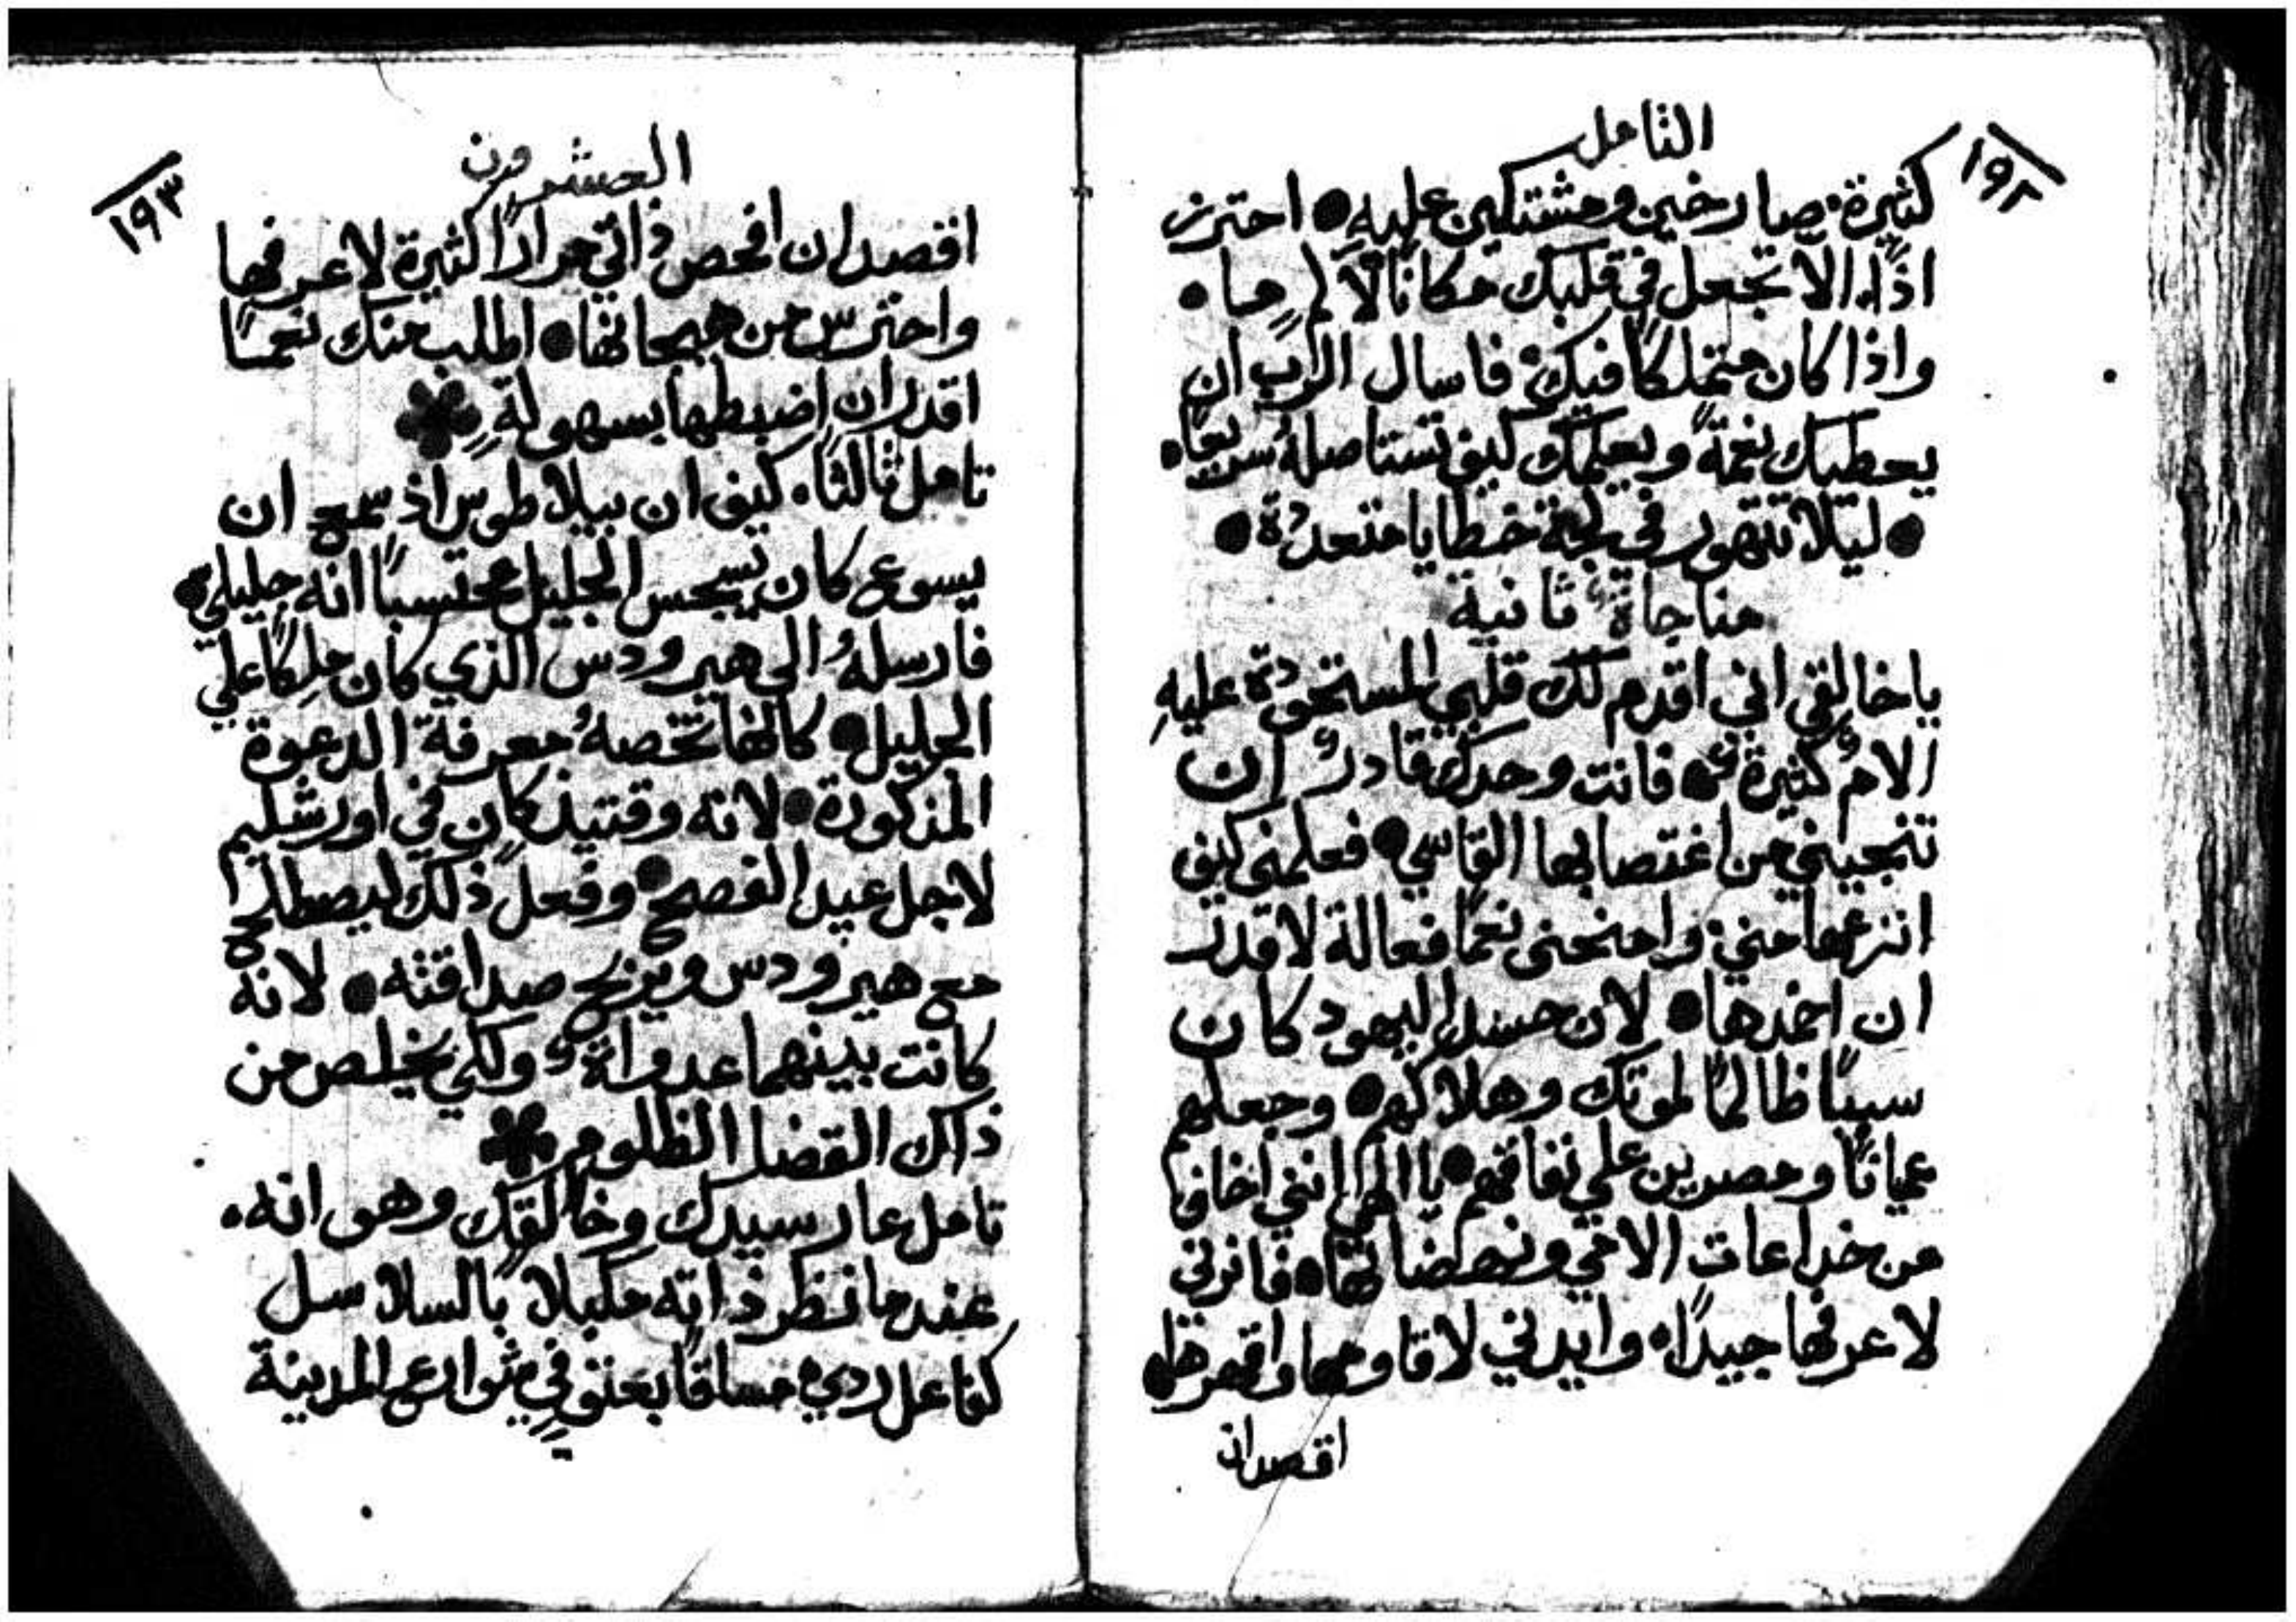 التامل
١٩٢
كثيرة صارخين ومشتكين عليه ● احترز
اذًا الا تجعل في قلبك مكانًا لآلامٍ ما ●
واذا كان متملكًا فيك فاسال الرب ان
يعطيك نعمةً ويعلمك كيف تستاصلهُ سريعًا ●
● ليلا تتهور في لجة خطايا متعددة ●
مناجاة ثانية
ياخالقي اني اقدم لك قلبي المستحوذة عليهِ
الامٌ كثيرةٌ ● فانت وحدك قادرٌ ان
تنجيني من اغتصابها القاسي ● فعلمني كيف
انزعها مني وامنحني نعمًا فعالة لاقدر
ان اخمدها ● لان حسد اليهود كان
سببًا ظالمًا لموتك وهلاكهم ● وجعلهم
عميانًا ومصرين على نفاقهم ● يا الهي انني اخاف
من خداعات الامي ونهضاتها ● فانرني
لاعرفها جيدًا ● وايدني لاقاومها واقهرها ●
اقصد ان
العشرون
١٩٣
اقصد ان افحص ذاتي مرارًا كثيرة لاعرفها
واحترس من هيجانها ● اطلب منك نعمًا
اقدر ان اضبطها بسهولةٍ
تامل ثالثًا ● كيف ان بيلاطوس اذ سمع ان
يسوع كان يسجس الجليل محتسبًا انه جليلي ●
فارسلهُ الي هيرودس الذي كان ملكًا علي
الجليل ● كانها تخصهُ معرفة الدعوة
المذكورة ● لانه وقتيذٍ كان في اورشليم
لاجل عيد الفصح ● وفعل ذلك ليصطلح
مع هيرودس ويربح صداقته ● لانه
كانت بينهما عداوةٌ ولكي يخلص من
ذلك القضا الظلوم
تامل عار سيدك وخالقك وهو انه ●
عندما نظر ذاته مكبلا بالسلاسل
كفاعل ردي مساقًا بعنفٍ في شوارع المدينة